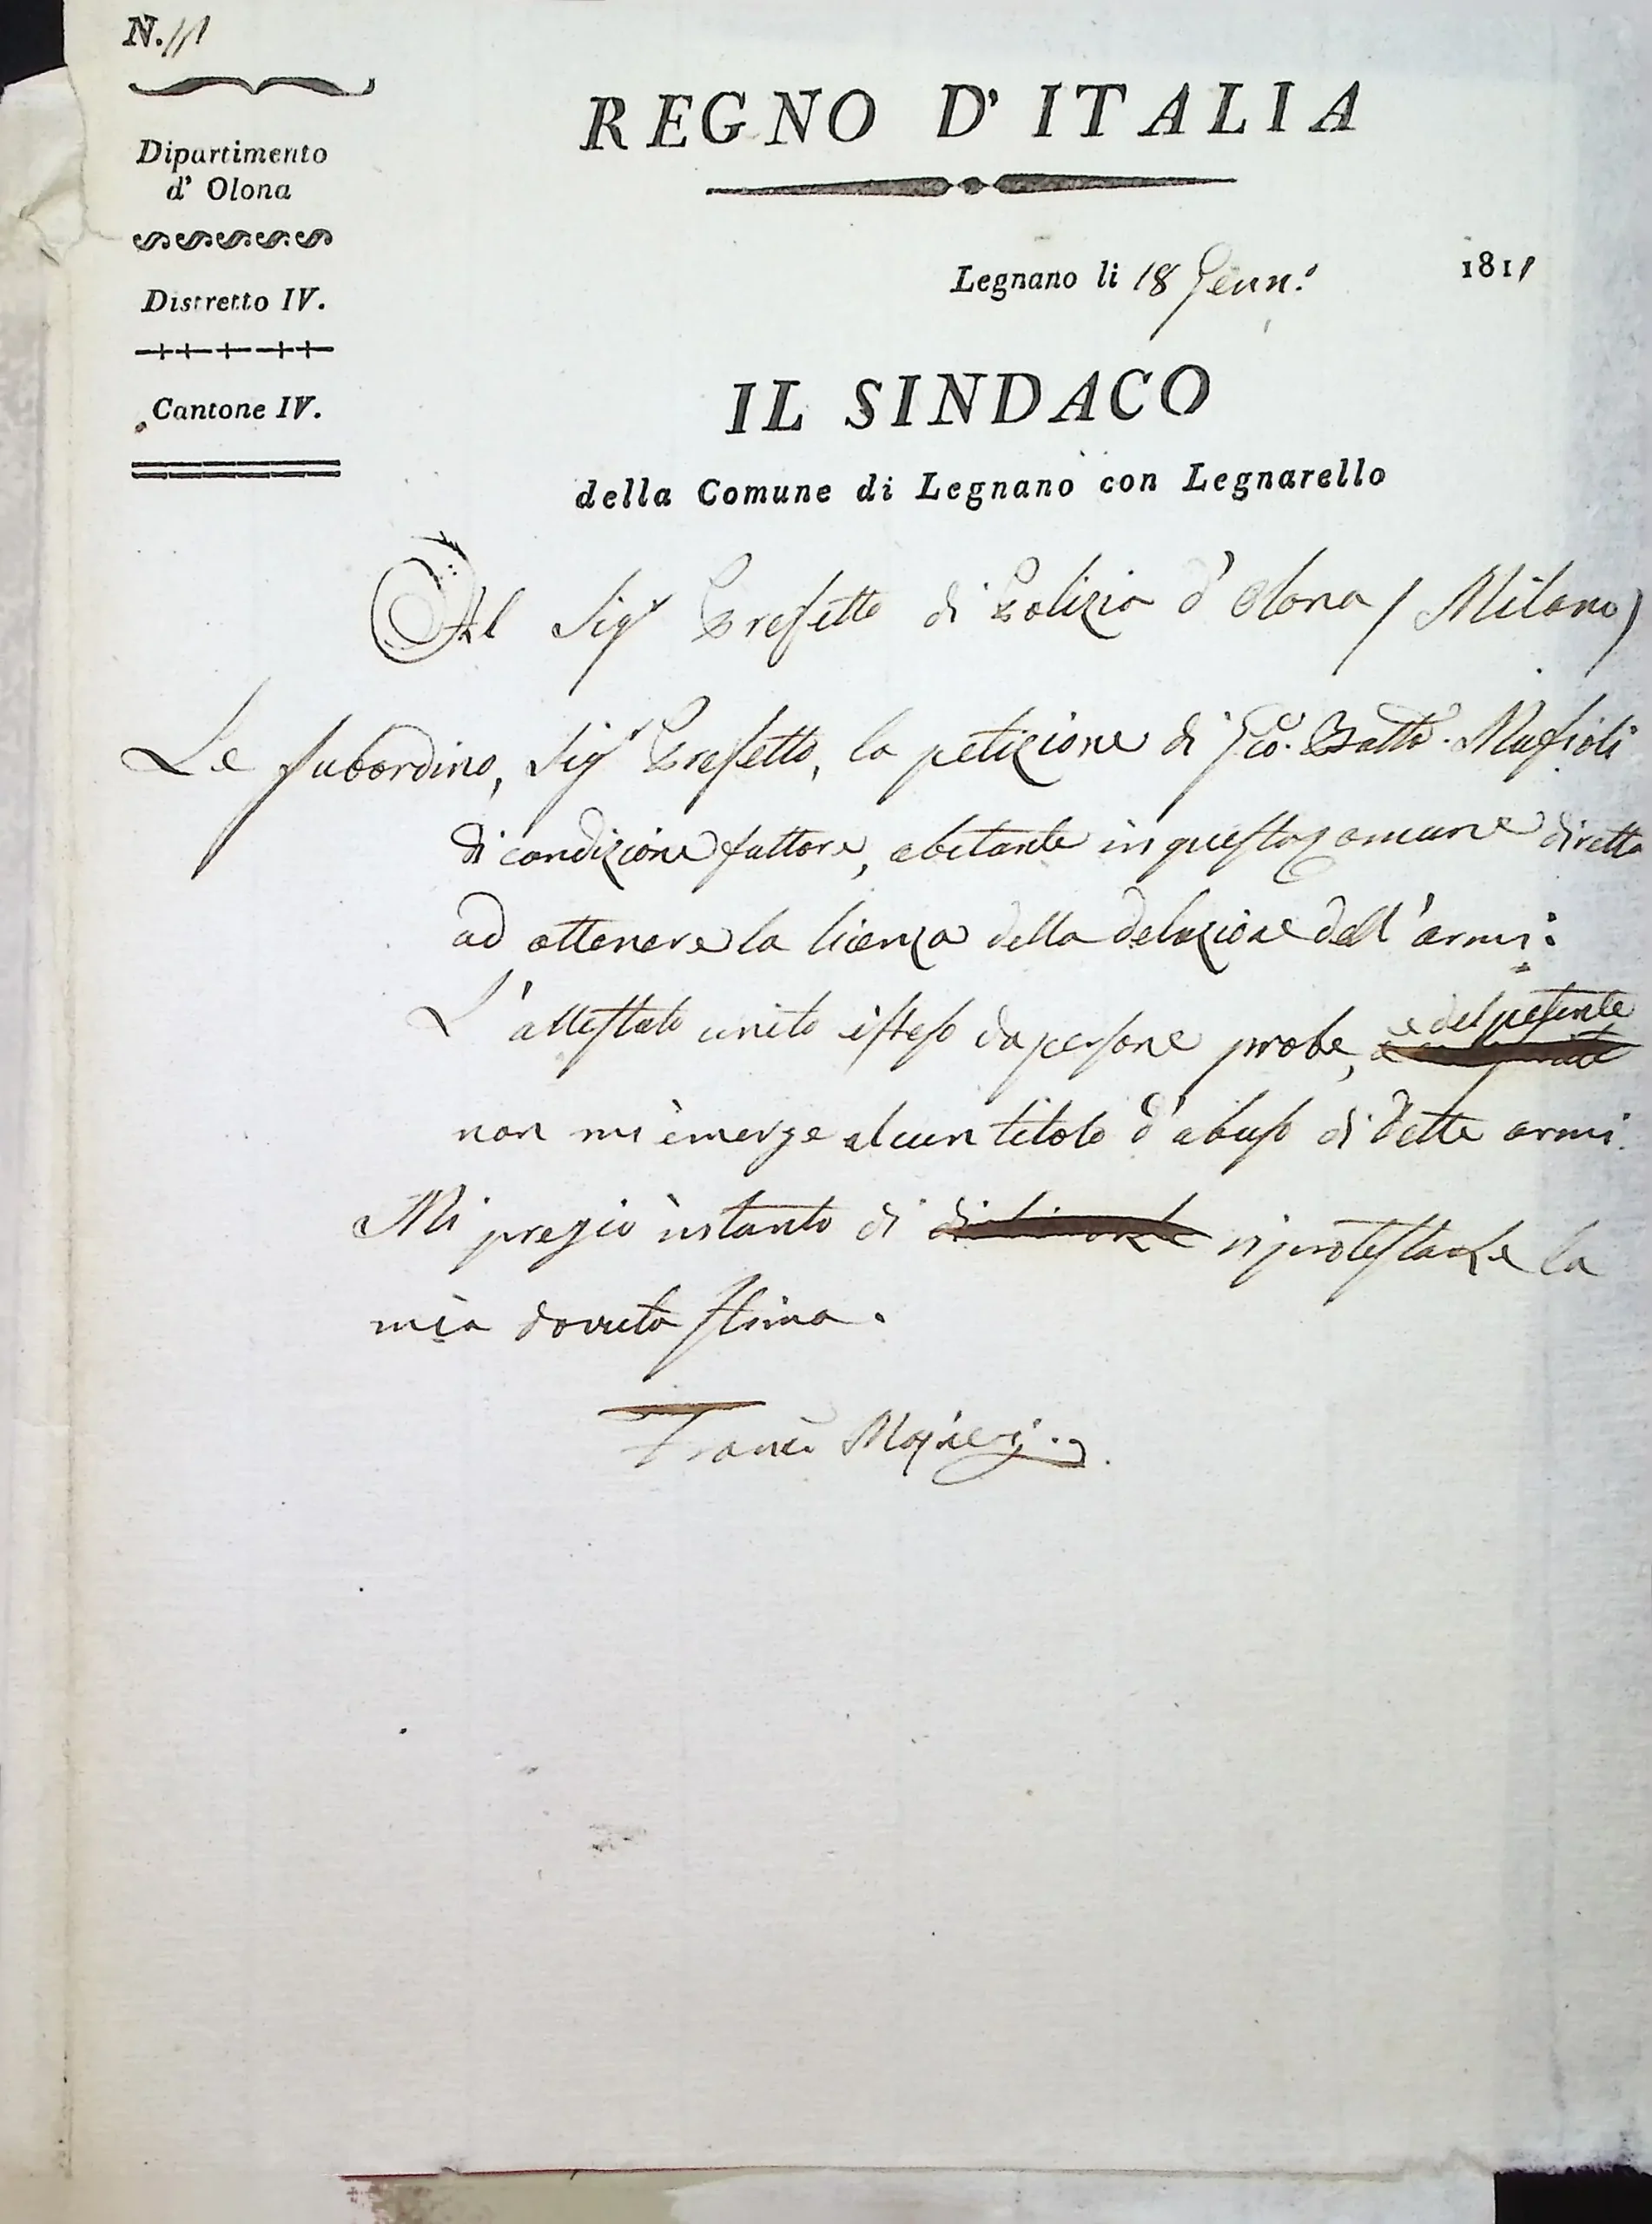 N. 111
Dipartimento
d' Olona
Distretto IV.
Cantone IV.
REGNO D' ITALIA
Legnano li 18 Genn.º 1811
IL SINDACO
della Comune di Legnano con Legnarello
Al Sigr Prefetto di Polizia d' Olona / Milano /
Le subordino, Sigr Prefetto, la petizione di Gio. Batta.
di condizione fattore, abitante in questa Comune diretta
ad ottenere la licenza della delazione dell' armi:
L' attestato unito esteso da persone probe, e del presente
non mi emerge alcun titolo d' abuso di dette armi.
Mi pregio intanto di riprotestarle la
mia dovuta stima.